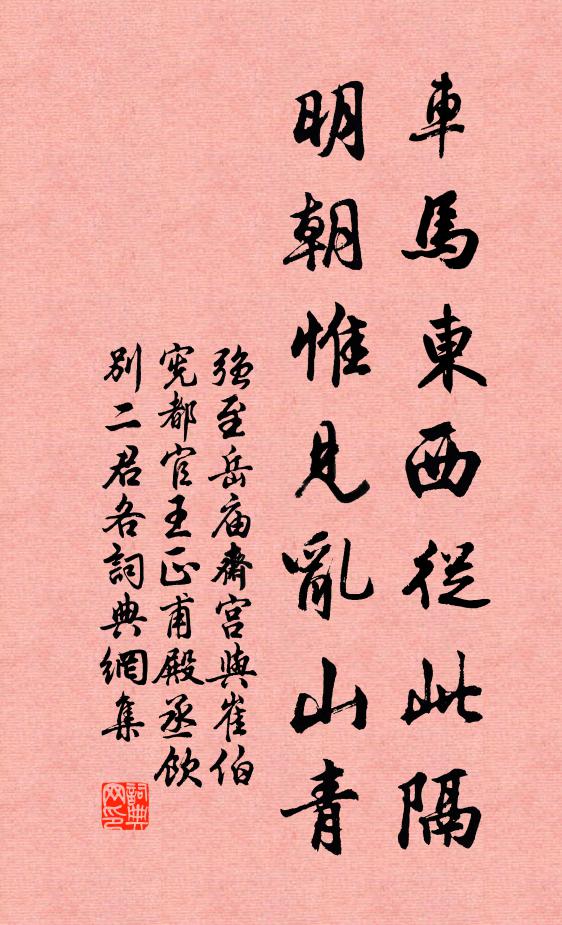 車馬東西從此隔
明朝惟見亂山青
強至岳庙齋宫與崔伯
宪都官王正甫殿丞飲
别二君各詞典網集
詞典
网印